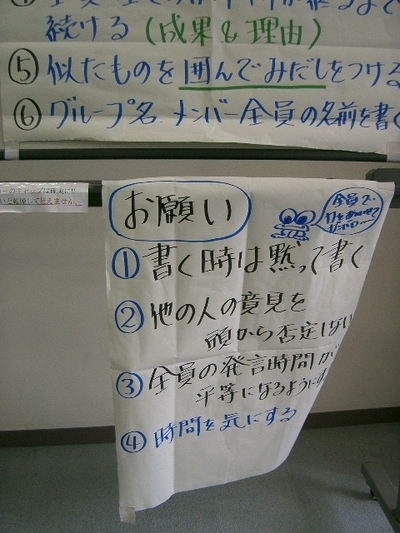 続ける（成果&理由）
⑤ 似たものを囲んでみだしをつける
⑥ グループ名、メンバー全員の名前を書く
お願い
全員で
力をあわせて
ガンバロー
① 書く時は黙って書く
② 他の人の意見を
頭から否定しない
③ 全員の発言時間が
平等になるようにす
④ 時間を気にする